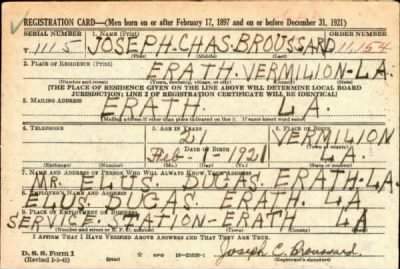 REGISTRATION CARD—(Men born on or after February 17, 1897 and on or before December 31, 1921)
SERIAL NUMBER 1. NAME (Print) ORDER NUMBER
1115 JOSEPH-CHAS-BROUSSARD 11,154
(First) (Middle) (Last)
2. PLACE OF RESIDENCE (Print)
ERATH. VERMILION-LA.
(Number and street) (Town, township, village, or city) (County) (State)
[THE PLACE OF RESIDENCE GIVEN ON THE LINE ABOVE WILL DETERMINE LOCAL BOARD
JURISDICTION; LINE 2 OF REGISTRATION CERTIFICATE WILL BE IDENTICAL]
3. MAILING ADDRESS
ERATH. LA.
[Mailing address if other than place indicated on line 2. If same insert word same]
4. TELEPHONE 5. AGE IN YEARS 6. PLACE OF BIRTH
21 VERMILION
DATE OF BIRTH (Town or county)
Feb-1-1921 LA
(Exchange) (Number) (Mo.) (Day) (Yr.) (State or country)
7. NAME AND ADDRESS OF PERSON WHO WILL ALWAYS KNOW YOUR ADDRESS
MR. DUGAS. ERATH-LA.
8. EMPLOYER'S NAME AND ADDRESS
DUGAS. ERATH. LA
9. PLACE OF EMPLOYMENT OR BUSINESS
SERVICE. STATION-ERATH LA
(Number and street or R. F. D. number) (Town) (County) (State)
I AFFIRM THAT I HAVE VERIFIED ABOVE ANSWERS AND THAT THEY ARE TRUE.
D. S. S. Form 1
(Revised 1-1-42) (over) 16—21630-1 Joseph C. Broussard
(Registrant's signature)